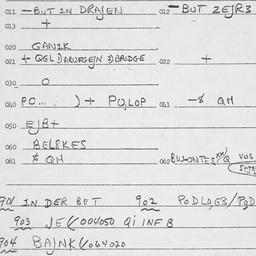 011 -BUT IN DRAJEN 012 -BUT ZEJR3
013 +
020 GANIK
021 + QGL)ARUFGEJN 3)BRIDGE 022 +
030 O
040 PO... )+ PO,LOP 041 -$ QH
050 EJB+
060 BELSKES
061 $ QH 062
901 IN DER BET 902 PODLO,G3/POD
903 JE(/004050 QI INF B
904 BAJNK(/064020